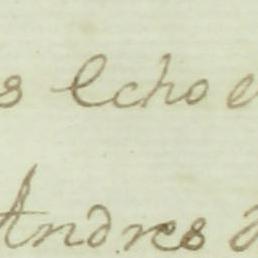 s echo e
Andres